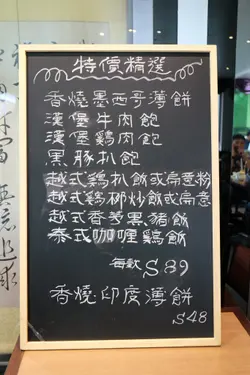 特價精選
香燒墨西哥薄餅
漢堡牛肉飽
漢堡鷄肉飽
黑豚扒飽
越式鷄扒飯或扁意粉
越式鷄柳炒飯或扁意
越式香茅黑豬飯
泰式咖喱鷄飯
每款 $89
香燒印度薄餅
$48